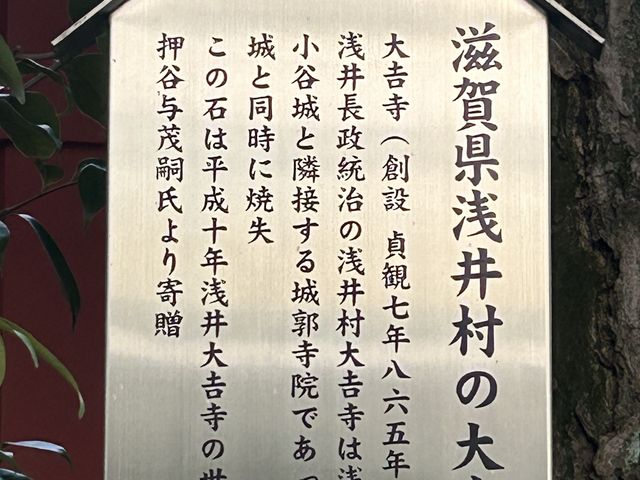 滋賀県浅井村の大
大吉寺（創設 貞観七年八六五年
浅井長政統治の浅井村大吉寺は浅
小谷城と隣接する城郭寺院であ
城と同時に焼失
この石は平成十年浅井大吉寺の
押谷与茂嗣氏より寄贈